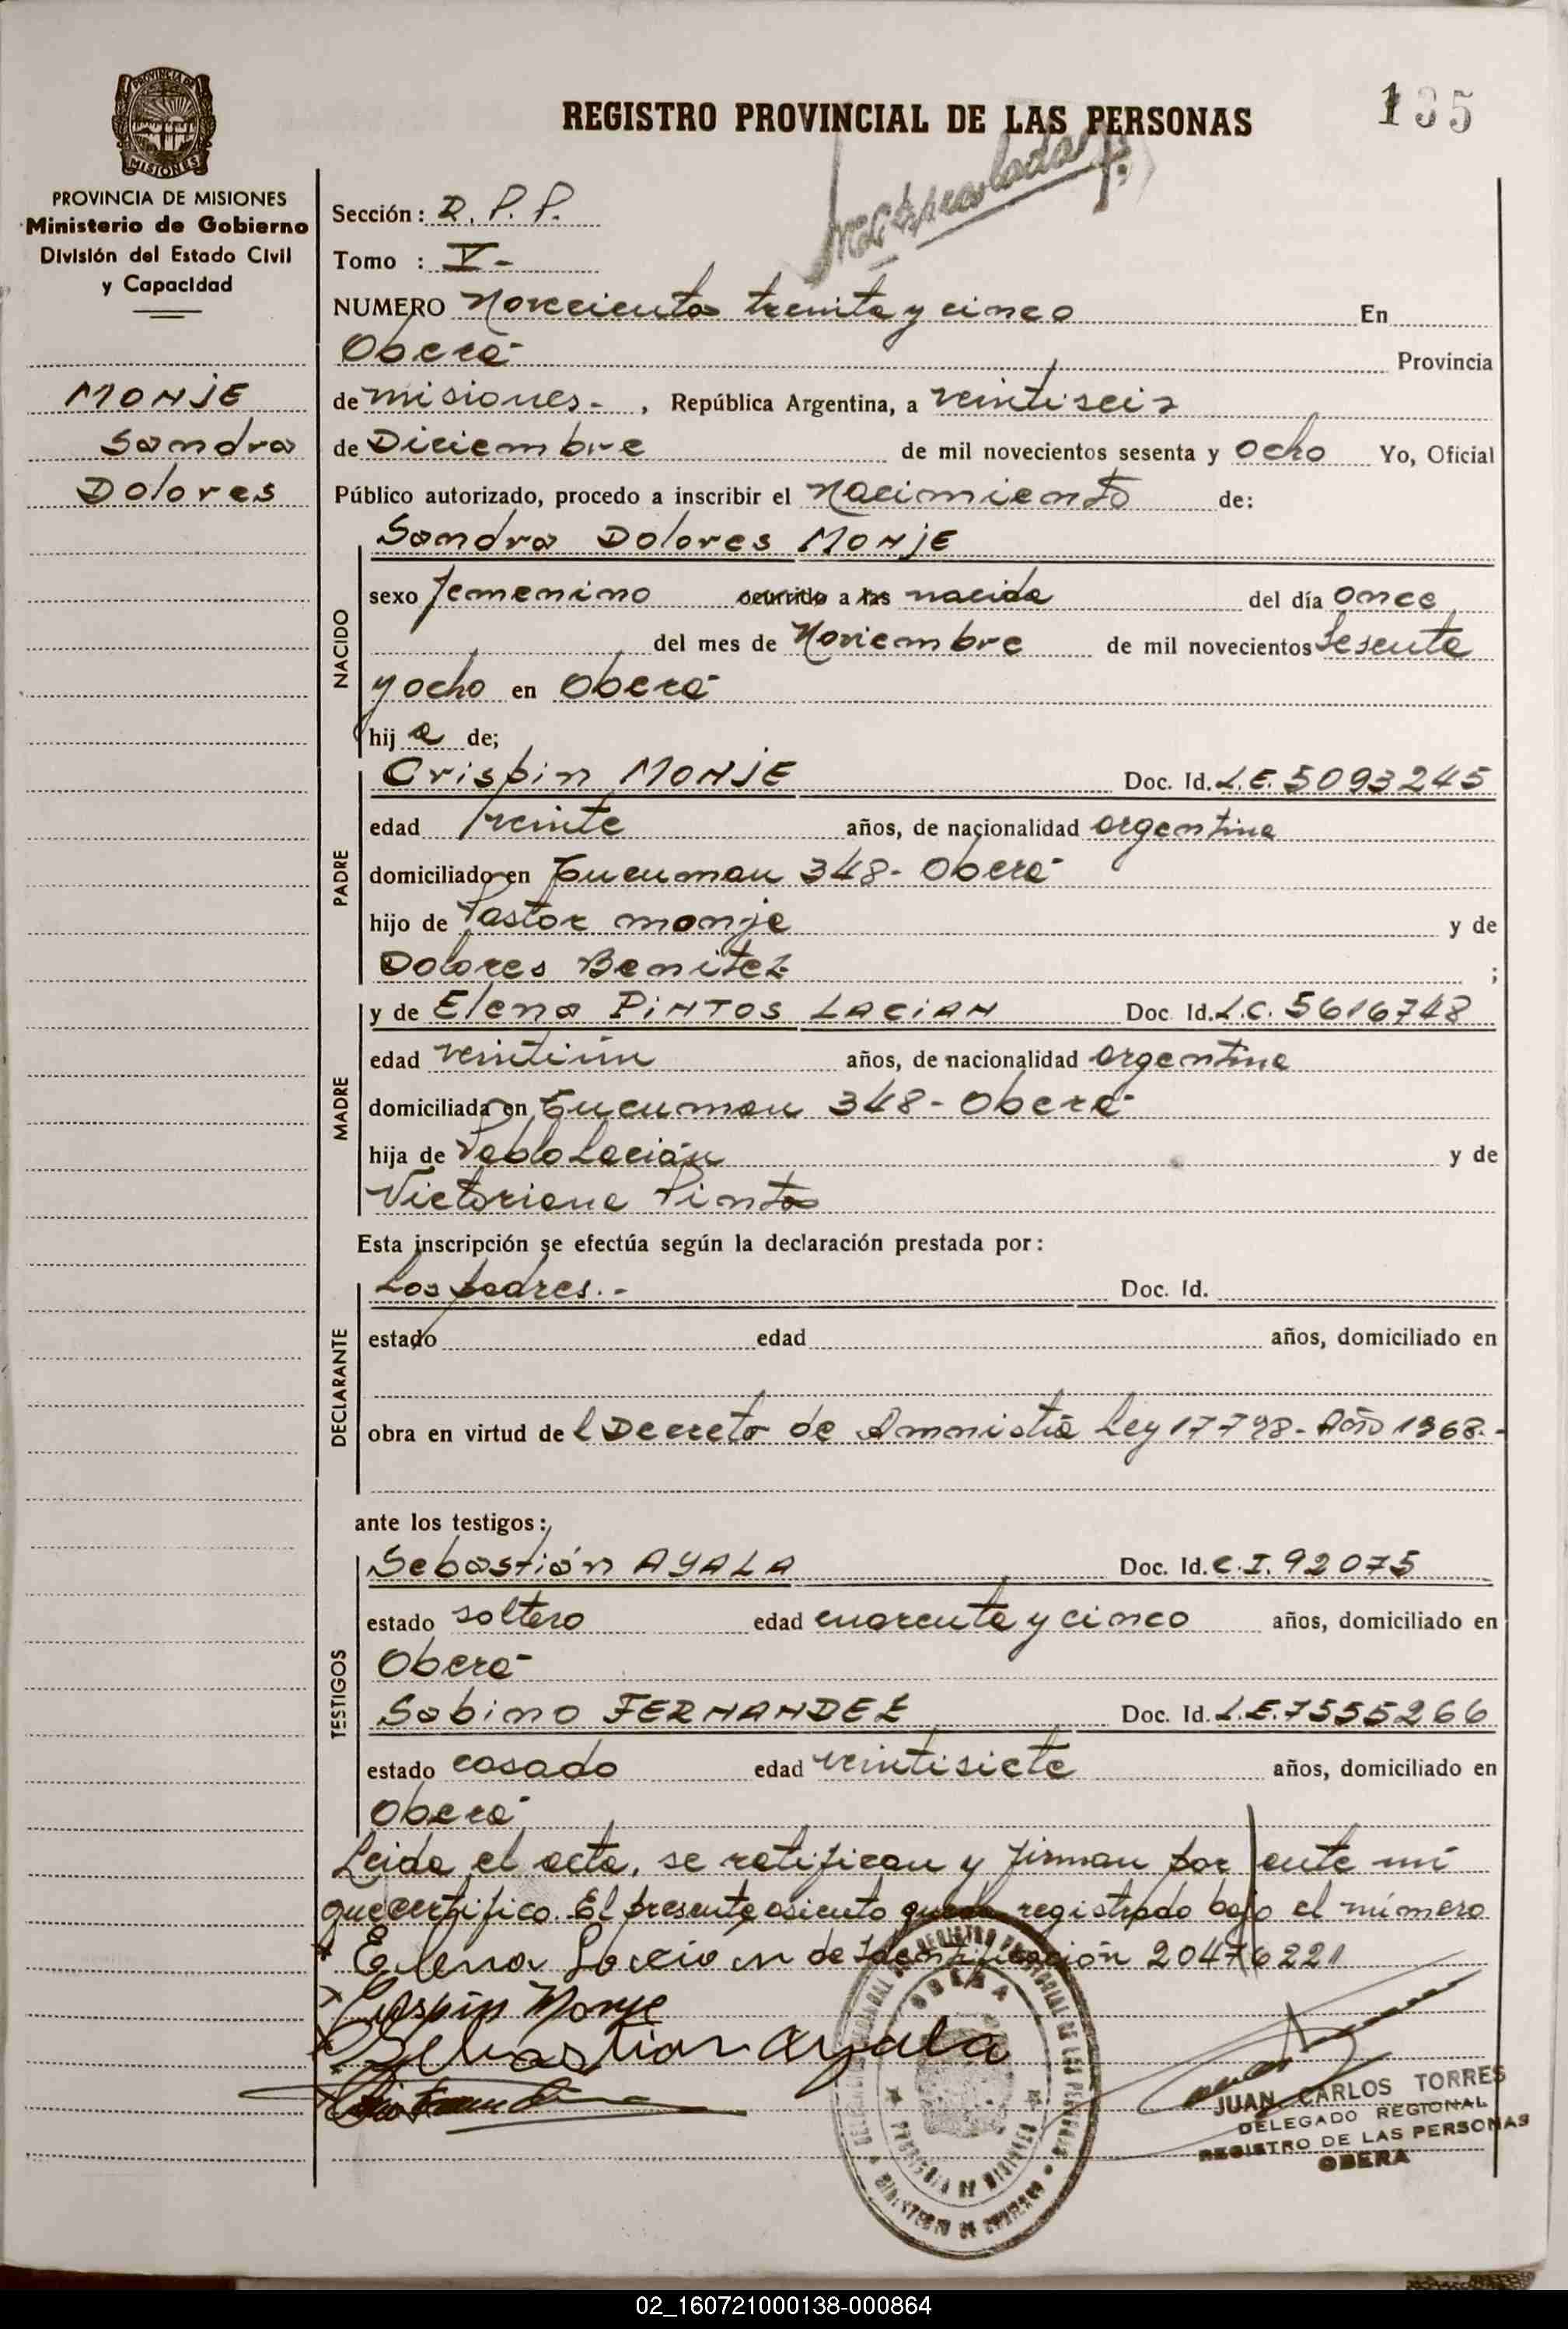 PROVINCIA DE
MISIONES
PROVINCIA DE MISIONES
Ministerio de Gobierno
División del Estado Civil
y Capacidad
MONJE
Sandra
Dolores
REGISTRO PROVINCIAL DE LAS PERSONAS
135
Sección: R. P. P.
Tomo : V-
NUMERO Novecientos treinta y cinco En
Oberá
Provincia
de misiones- , República Argentina, a veintiseis
de Diciembre de mil novecientos sesenta y ocho Yo, Oficial
Público autorizado, procedo a inscribir el Nacimiento de:
Sandra Dolores MONJE
NACIDO
sexo femenino ocurrido a las nacida del día once
del mes de Noviembre de mil novecientos sesenta
y ocho en Oberá
hij a de;
PADRE
Crispin MONJE Doc. Id. L.E. 5093245
edad veinte años, de nacionalidad argentina
domiciliado en Tucuman 348- Oberá
hijo de Pastor monje y de
Dolores Benitez ;
MADRE
y de Elena PINTOS LACIAN Doc. Id. L.C. 5616748
edad veintiún años, de nacionalidad argentina
domiciliada en Tucuman 348- Oberá
hija de Pablo Lacián y de
Victoriana Pintos
Esta inscripción se efectúa según la declaración prestada por:
DECLARANTE
Los padres.- Doc. Id.
estado edad años, domiciliado en
obra en virtud de l Decreto de Amnistía Ley 17798- Año 1968.-
ante los testigos:
TESTIGOS
Sebastián AYALA Doc. Id. C.I. 92075
estado soltero edad cuarenta y cinco años, domiciliado en
Oberá
Sabino FERNANDEZ Doc. Id. L.E. 7555266
estado casado edad veintisiete años, domiciliado en
Oberá
Leida el acta, se ratifican y firman por ante mí
que certifico. El presente asiento queda registrado bajo el número
de Identificación 20476221
Crispin Monje
Sebastian ayala
OBERA
PROVINCIA DE MISIONES
MINISTERIO DE GOBIERNO
JUAN CARLOS TORRES
DELEGADO REGIONAL
REGISTRO DE LAS PERSONAS
OBERA
02_160721000138-000864